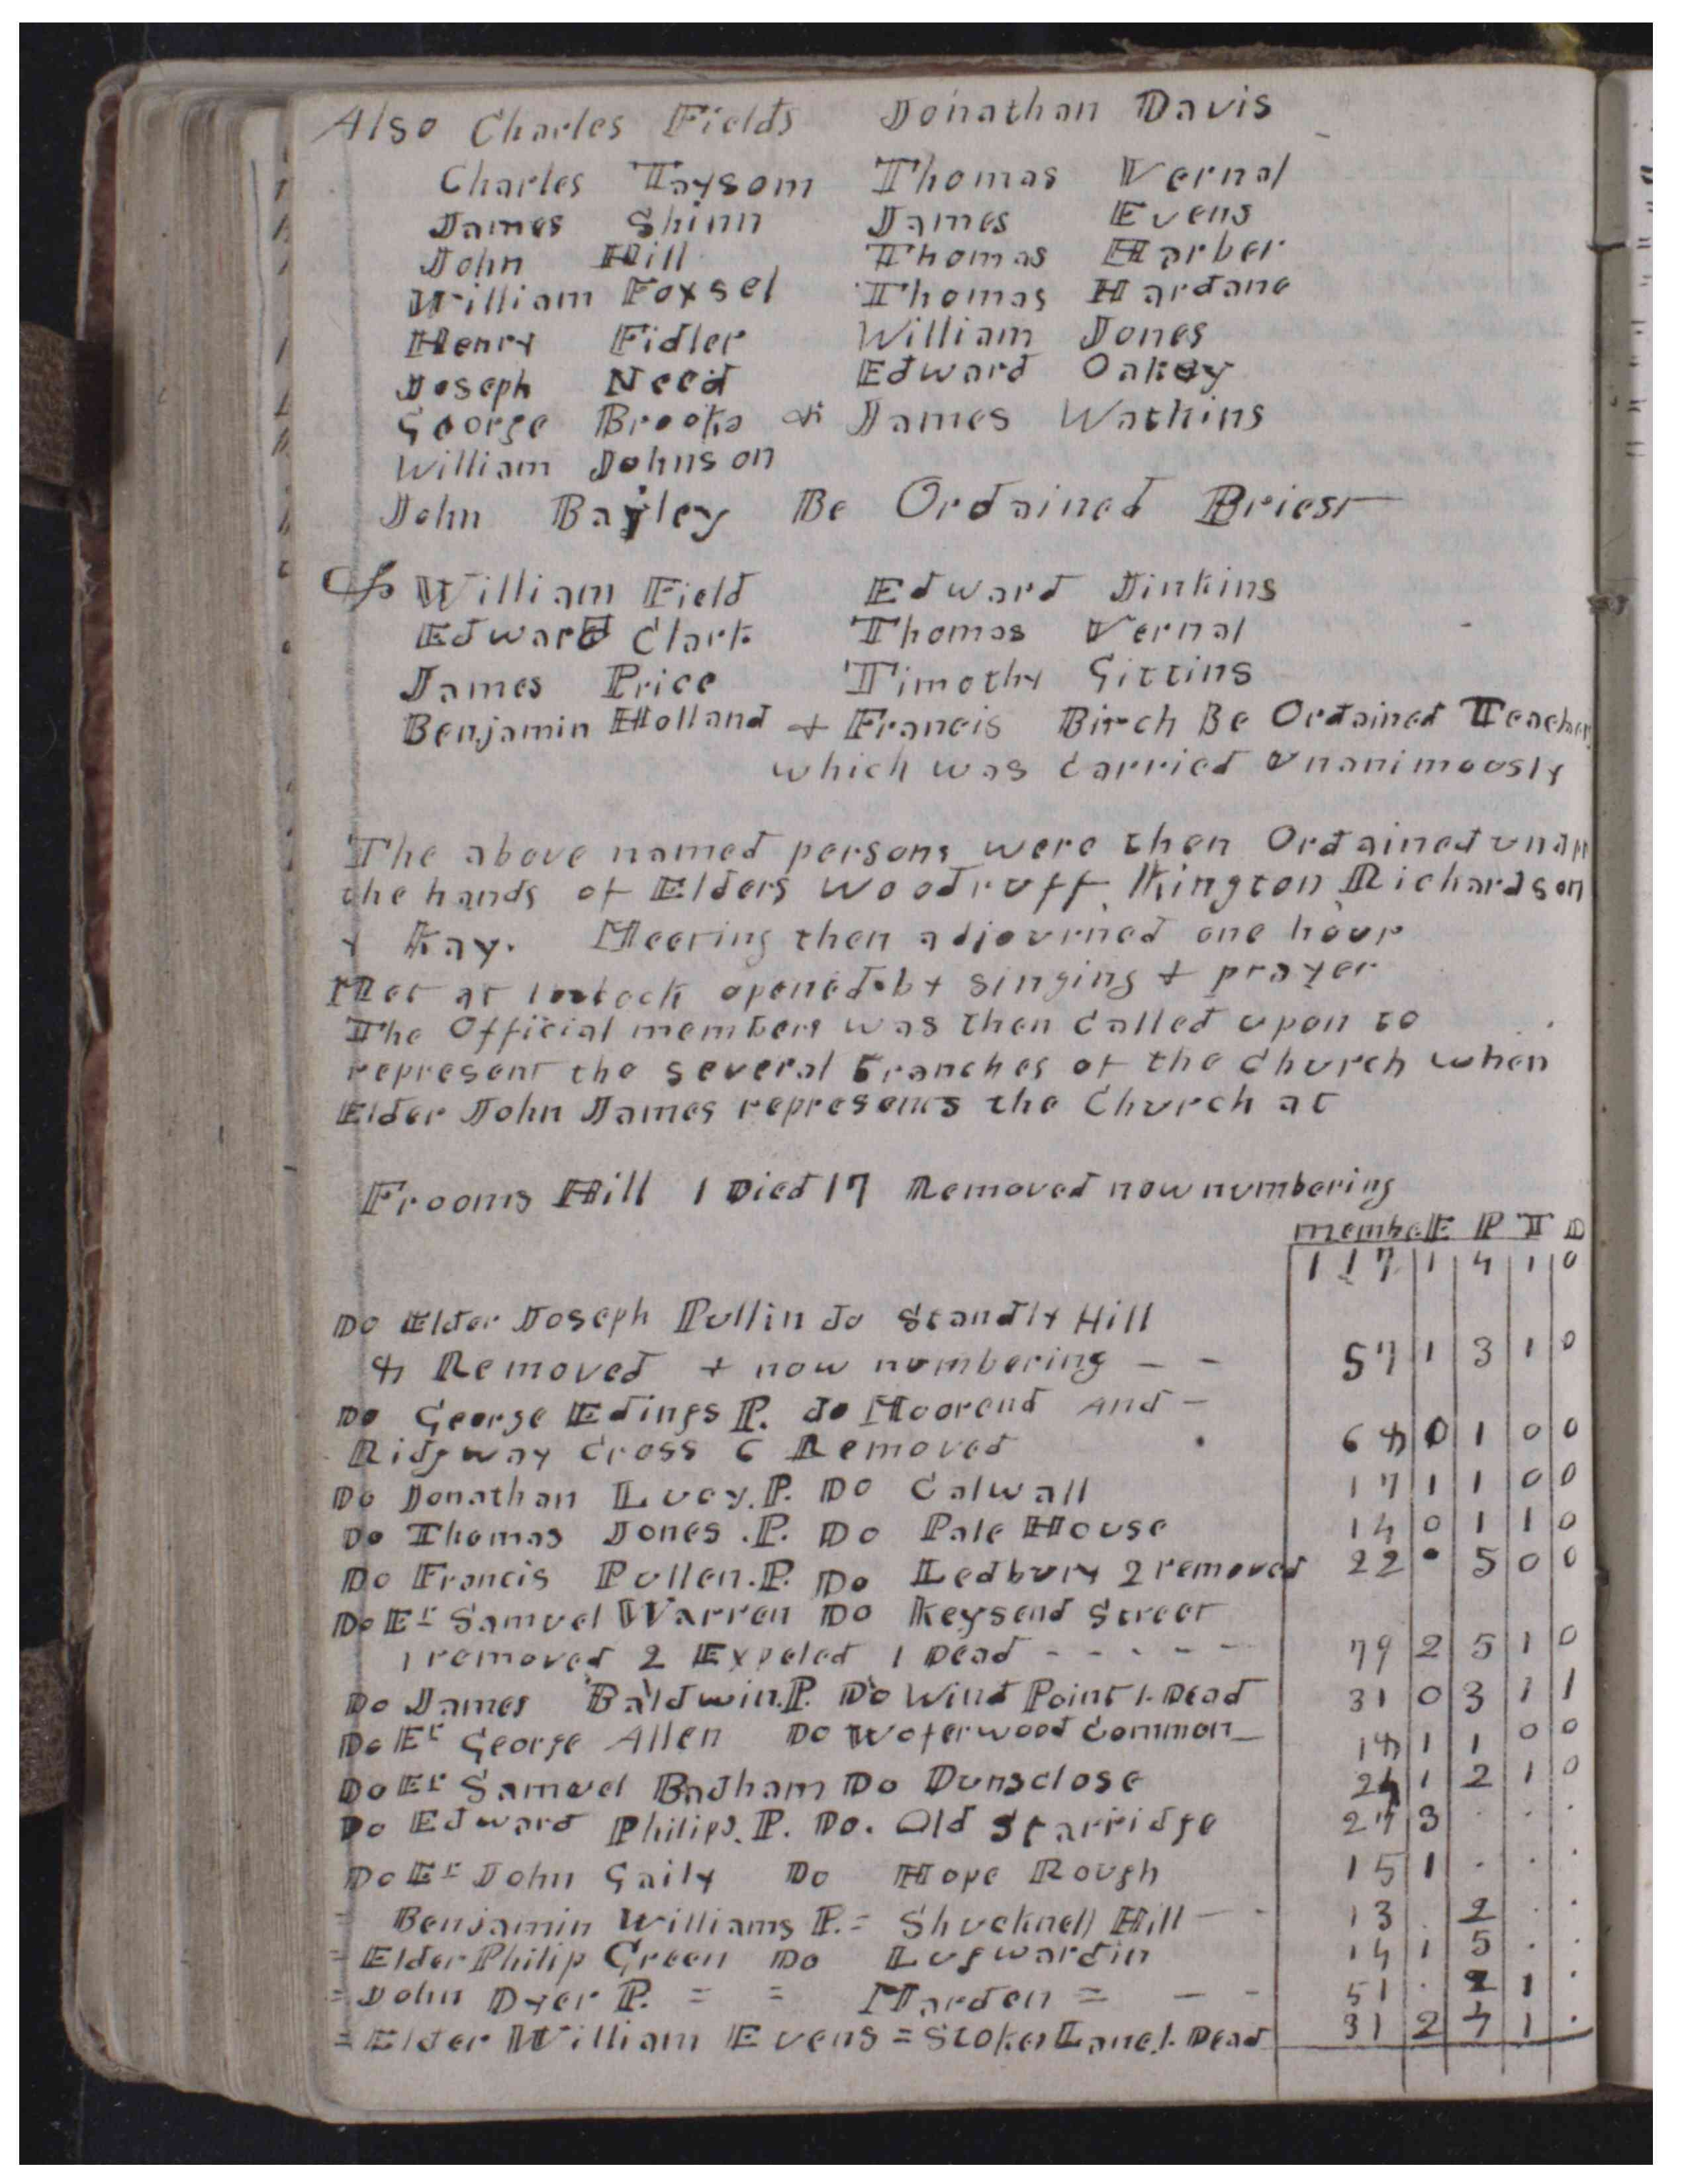 Also Charles Fields Jonathan Davis
Charles Taysom Thomas Vernal
James Shinn James Evens
John Hill Thomas Harber
William Foxsel Thomas Hardane
Henry Fidler William Jones
Joseph Need Edward Oakey
George Brooks & James Watkins
William Johnson
John Bayley Be Ordained Priest
& William Field Edward Jinkins
Edward Clark Thomas Vernal
James Price Timothy Gittins
Benjamin Holland + Francis Birch Be Ordained Teacher
which was Carried Unanimously
The above named persons were then Ordained
the hands of Elders Woodruff, Kington, Richardson
+ Kay. Meeting then adjourned one hour
Met at opened by singing + prayer
The Official members was then Called upon to
represent the several Branches of the Church when
Elder John James represents the Church at
Frooms Hill 1 Died 17 Removed now numbering
membe E P T D
117 1 4 1 0
Do Elder Joseph Pullin do Standly Hill
4 Removed + now numbering - - 57 1 3 1 0
Do George Edings P. do Moorend And -
Ridgway Cross 6 Removed 64 0 1 0 0
Do Jonathan Lucy. P. Do Calwall 17 1 1 0 0
Do Thomas Jones. P. Do Pale House 14 0 1 1 0
Do Francis Pullen. P. Do Ledbury 2 removed 22 • 5 0 0
Do Er Samuel Warren Do Keysend Street
1 removed 2 Expeled 1 Dead - - - - - 79 2 5 1 0
Do James Baldwin. P. Do Wind Point 1. Dead 31 0 3 1 1
Do Er George Allen Do Woferwood Common 14 1 1 0 0
Do Er Samuel Badham Do Dunsclose 24 1 2 1 0
Do Edward Philips. P. Do. Old Starridge 27 3 . . .
Do Er John Gaily Do Hope Rough 15 1 . . .
= Benjamin Williams P. = Shucknell Hill - - 13 . 2 . .
= Elder Philip Green Do Lugwardin 14 1 5 . .
= John Dyer P. = = Marden = - - 51 . 2 1 .
= Elder William Evens = Stokes Lane 1. Dead 31 2 7 1 .